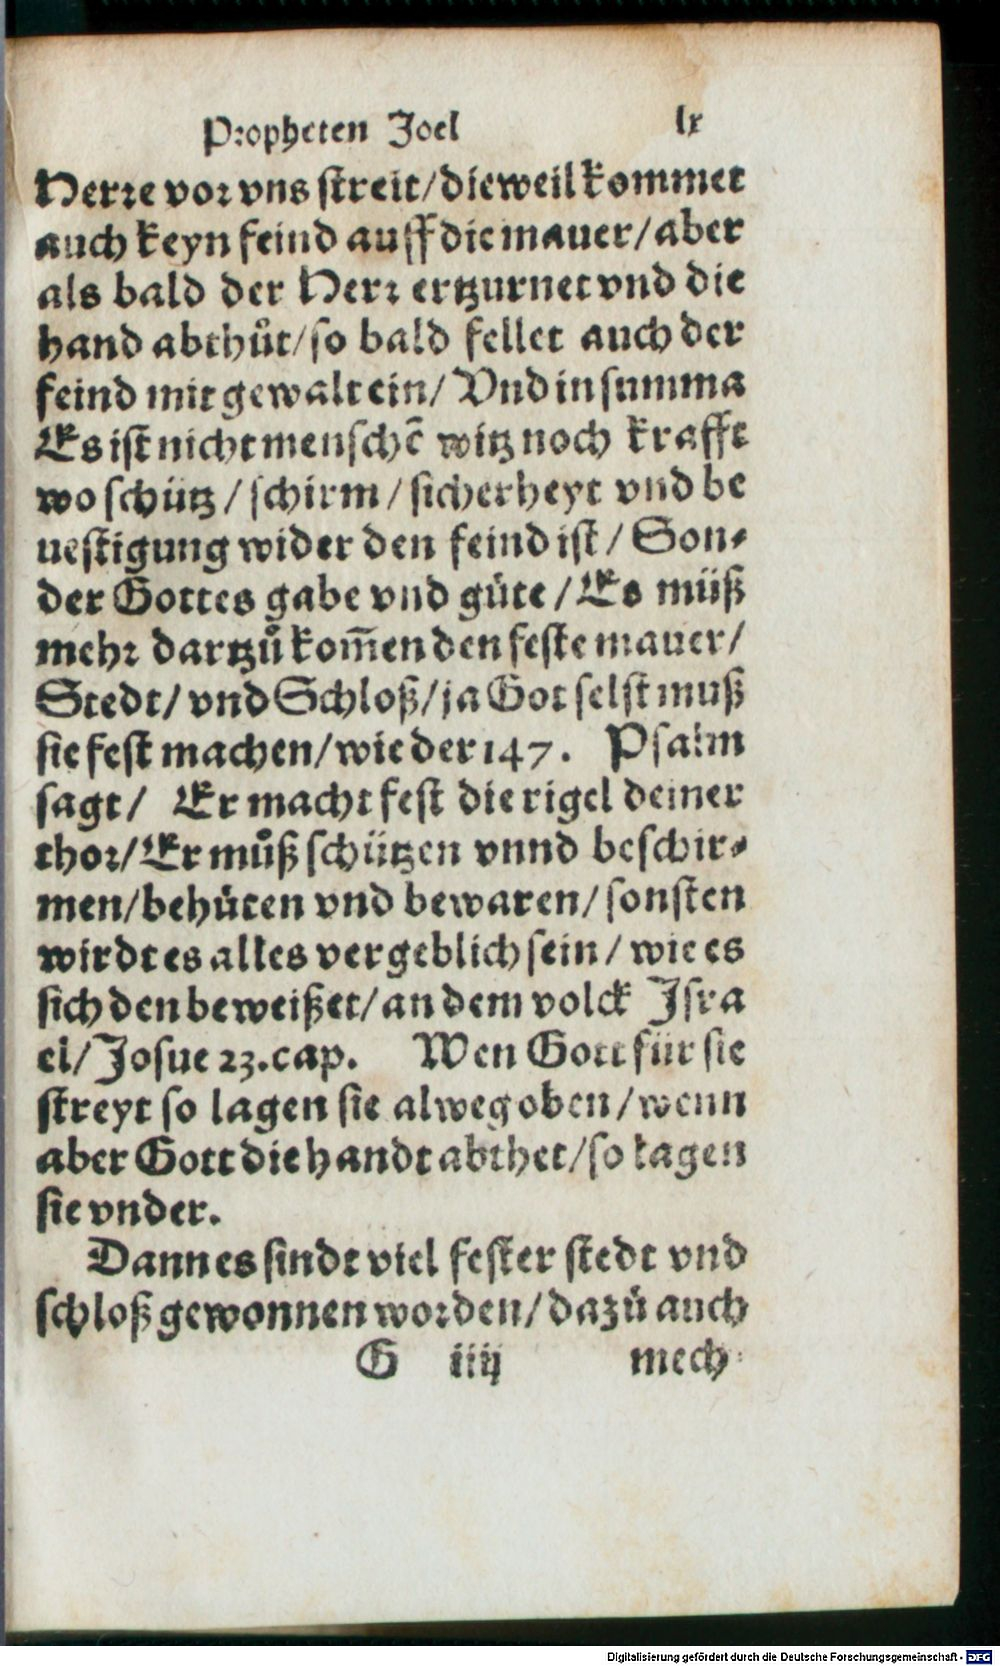 Propheten Joel lx
Herre vor vns streit/dieweil kommet
auch keyn feind auff die mauer/aber
als bald der Herr ertzurnet vnd die
hand abthůt/so bald fellet auch der
feind mit gewalt ein/ Vnd in summa
Es ist nicht menschē witz noch krafft
wo schütz/schirm/sicherheyt vnd be
uestigung wider den feind ist/Son⸗
der Gottes gabe vnd güte/Es müß
mehr dartzů kom̄en den feste mauer/
Stedt/vnd Schloß/ja Got selst muß
sie fest machen/wie der 147. Psalm
sagt/ Er macht fest die rigel deiner
thor/Er můß schützen vnnd beschir⸗
men/behüten vnd bewaren/sonsten
wirdt es alles vergeblich sein/wie es
sich den beweißet/an dem volck Jsra
el/Josue 23.cap. Wen Gott für sie
streyt so lagen sie alweg oben/wenn
aber Gott die handt abthet/so lagen
sie vnder.
Dann es sindt viel fester stedt vnd
schloß gewonnen worden/dazů auch
G iiij mech⸗
Digitalisierung gefördert durch die Deutsche Forschungsgemeinschaft - DFG